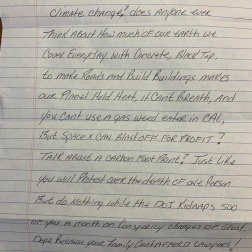 Climate change? does Anyone ever
Think About How much of our earth we
Cover Everyday with Concrete, Black Top,
to make Roads and Build Buildings makes
our Planet Hold Heat, it Can't Breath, and
you Can't use A gas weed eater in CAL,
But Space X CAN BLAST OFF FOR PROFIT?
TALK About a Carbon Foot Print? Just Like
you will Protest over the death of one Person
But do Nothing while the DOJ Kidnaps 500
of you A month on Conspiracy charges of Ghost
Dope Because your family Can't Afford Lawyers!